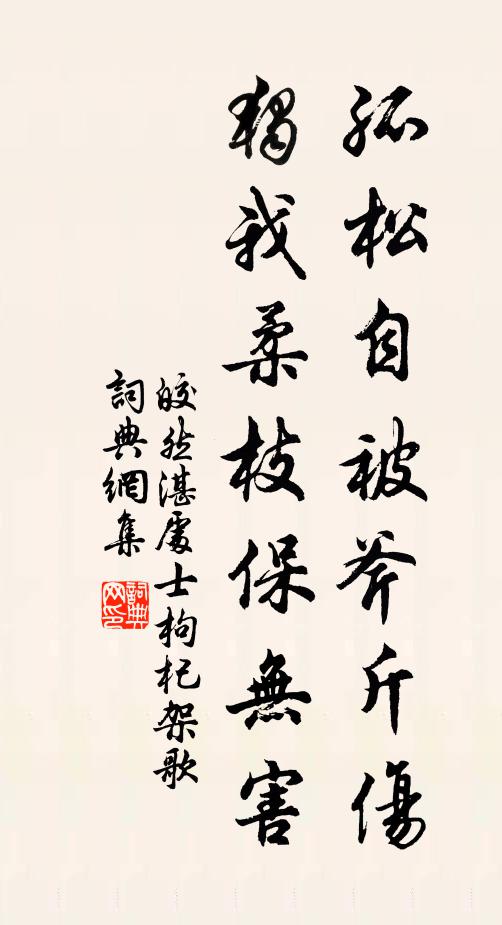 孤松自被斧斤傷
獨我柔枝保無害
皎然湛處士枸杞架歌
詞典網集
詞典
网印